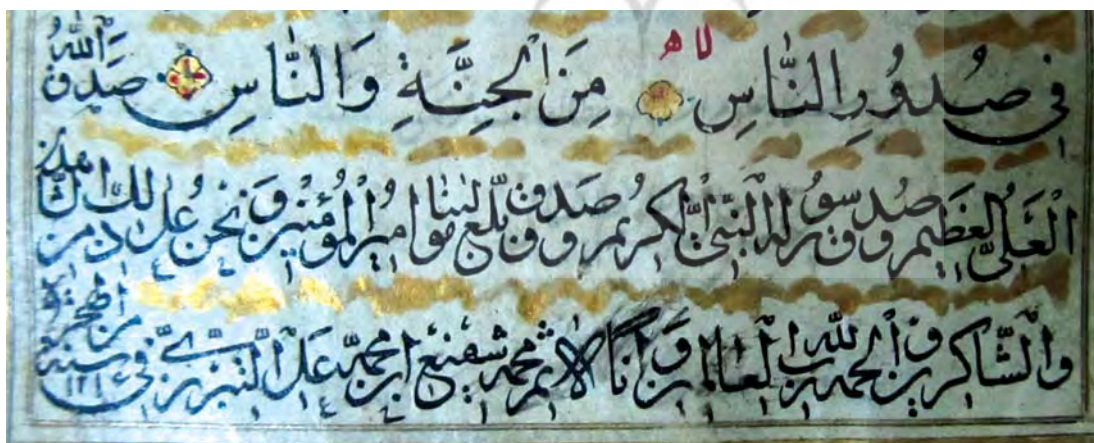 فِي صُدُورِ النَّاسِ لا ه مِنَ الْجِنَّةِ وَالنَّاسِ صَدَقَ اللّٰهُ
الْعَلِيُّ الْعَظِيمُ وَ صَدَقَ رَسُولُهُ النَّبِيُّ الْكَرِيمُ وَ صَدَقَ وَ بَلَّغَ مَوْلٰينَا اَمِيرُ الْمُؤْمِنِينَ وَ نَحْنُ عَلٰى ذٰلِكَ مِنَ الشَّاهِدِينَ
وَ الشَّاكِرِينَ وَ الْحَمْدُ لِلّٰهِ رَبِّ الْعَالَمِينَ وَ اَنَا الْاٰثِمُ مُحَمَّد شَفِيع ابْنِ مُحَمَّد عَلِي التَّبْرِيزِي فِي سَنَة مِنَ الْهِجْرَة